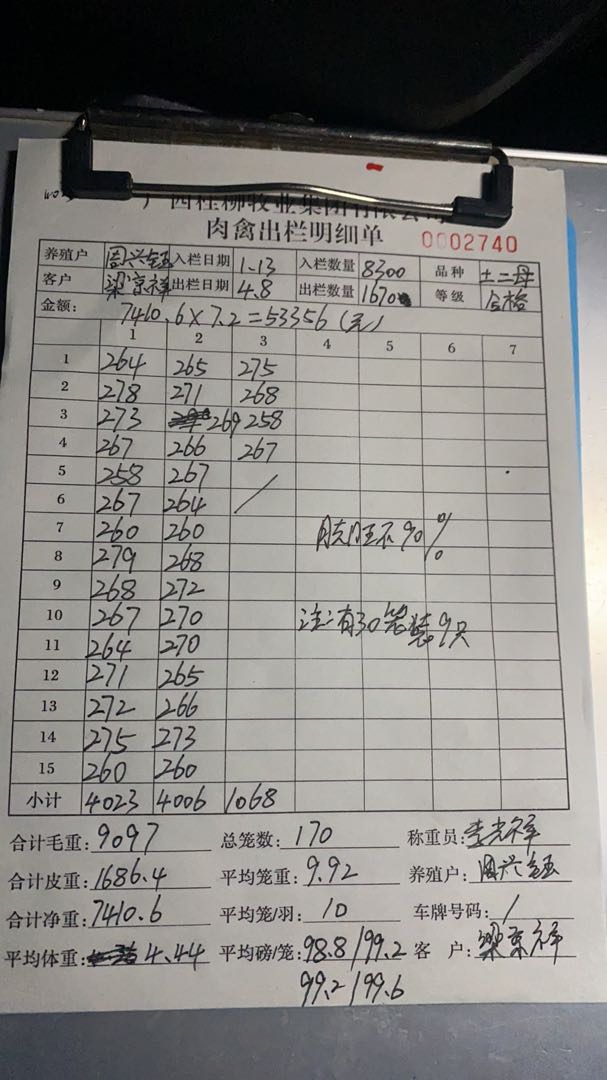 广西桂柳牧业集团有限公司
肉禽出栏明细单 0002740
养殖户 周兴钰 入栏日期 1.13 入栏数量 8300 品种 土二母
客户 梁京祥 出栏日期 4.8 出栏数量 1670 等级 合格
金额: 7410.6×7.2=53356(元)
1 2 3 4 5 6 7
1 264 265 275
2 278 271 268
3 273 269 258
4 267 266 267
5 258 267
6 267 264 /
7 260 260
8 279 268
9 268 272
10 267 270
11 264 270
12 271 265
13 272 266
14 275 273
15 260 260
不90%
注:有30笼装9只
小计 4023 4006 1068
合计毛重: 9097 总笼数: 170 称重员: 李光祥
合计皮重: 1686.4 平均笼重: 9.92 养殖户: 周兴钰
合计净重: 7410.6 平均笼/羽: 10 车牌号码: /
平均体重: 4.44 平均磅/笼: 98.8/99.2 客户: 梁京祥
99.2/99.6